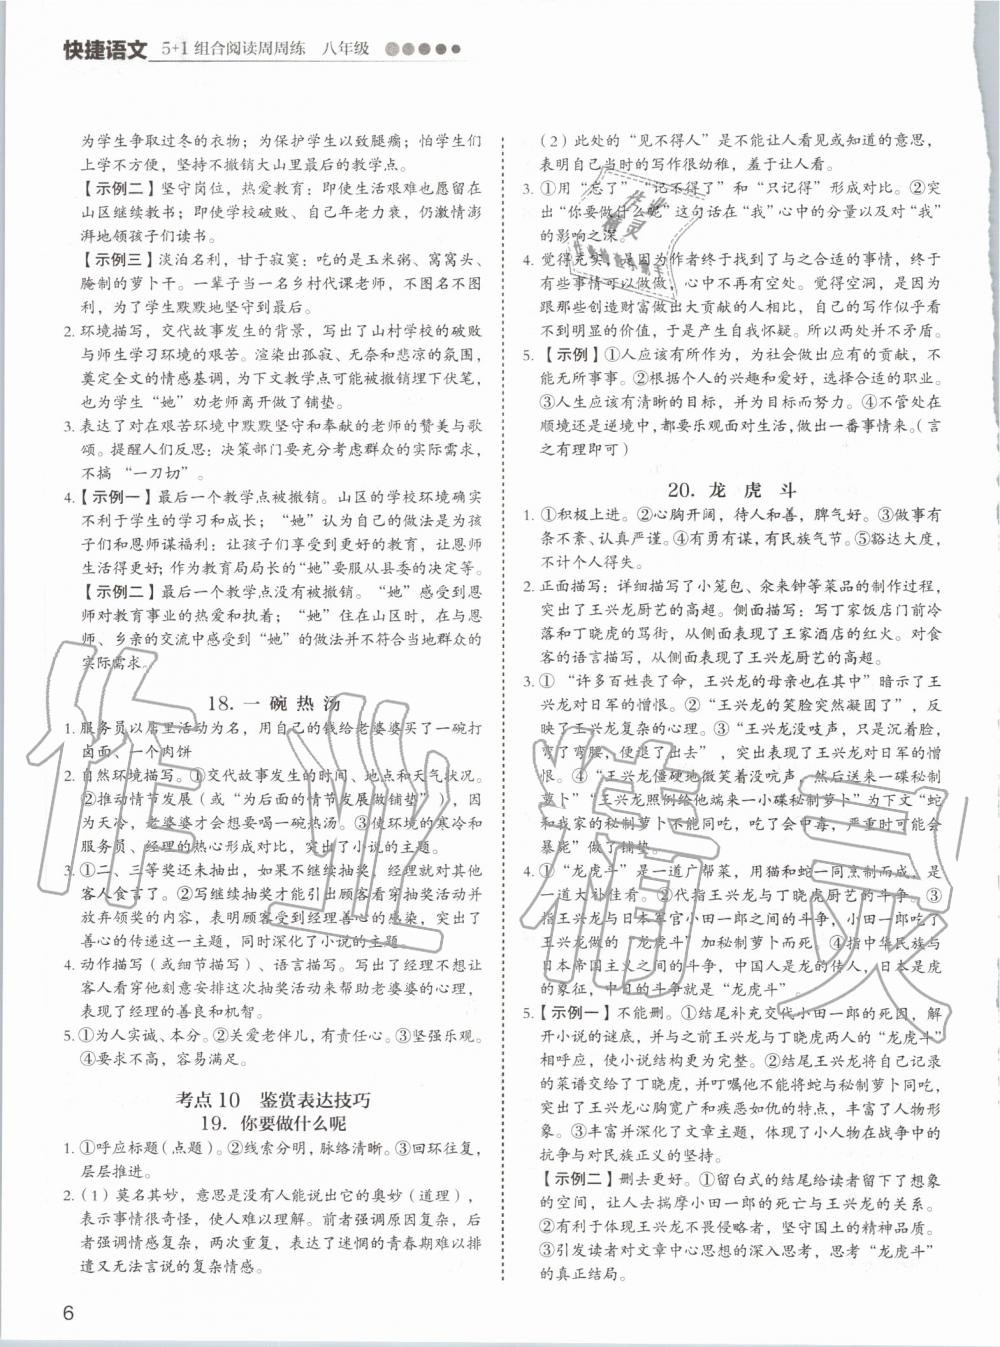 快捷语文 5+1组合阅读周周练 八年级
为学生争取过冬的衣物；为保护学生以致腿瘸；怕学生们
上学不方便，坚持不撤销大山里最后的教学点。
【示例二】坚守岗位，热爱教育：即使生活艰难也愿留在
山区继续教书；即使学校破败、自己年老力衰，仍激情澎
湃地领孩子们读书。
【示例三】淡泊名利，甘于寂寞：吃的是玉米粥、窝窝头、
腌制的萝卜干。一辈子当一名乡村代课老师，不图名不图
利，为了学生默默地坚守到最后。
2. 环境描写，交代故事发生的背景，写出了山村学校的破败
与师生学习环境的艰苦。渲染出孤寂、无奈和悲伤的氛围，
奠定全文的情感基调，为下文教学点可能被撤销埋下伏笔，
也为学生“她”劝老师离开做了铺垫。
3. 表达了对在艰苦环境中默默坚守和奉献的老师的赞美与歌
颂。提醒人们反思：决策部门要充分考虑群众的实际需求，
不搞“一刀切”。
4. 【示例一】最后一个教学点被撤销。山区的学校环境确实
不利于学生的学习和成长；“她”认为自己的做法是为孩
子们和恩师谋福利：让孩子们享受到更好的教育，让恩师
生活得更好；作为教育局局长的“她”要服从县委的决定等。
【示例二】最后一个教学点没有被撤销。“她”感受到恩
师对教育事业的热爱和执着；“她”住在山区时，在与恩
师、乡亲的交流中感受到“她”的做法并不符合当地群众的
实际需求。
18. 一碗热汤
1. 服务员以店里活动为名，用自己的钱给老婆婆买了一碗打
卤面、一个肉饼
2. 自然环境描写。①交代故事发生的时间、地点和天气状况。
②推动情节发展（或“为后面的情节发展做铺垫”），因
为天冷，老婆婆才会想要喝一碗热汤。③使环境的寒冷和
服务员、经理的热心形成对比，突出了小说的主题。
3. ①二、三等奖还未抽出，如果不继续抽奖，经理就要对顾
客人食言了。②写继续抽奖才能引出顾客看穿抽奖活动并
放弃领奖的内容，表明顾客们受到经理善心的感染，突出了
善心的传递这一主题，同时深化了小说的主题
4. 动作描写（或细节描写）、语言描写。写出了经理不想让
客人看穿他刻意安排这次抽奖活动来帮助老婆婆的心理，
表现了经理的善良和机智。
5. ①为人实诚、本分。②关爱老伴儿，有责任心。③坚强乐观。
④要求不高，容易满足。
考点10 鉴赏表达技巧
19. 你要做什么呢
1. ①呼应标题（点题）。②线索分明，脉络清晰。③回环往复，
层层推进。
2. （1）莫名其妙，意思是没有人能说出它的奥妙（道理），
表示事情很奇怪，使人难以理解。前者强调原因复杂，后
者强调情感复杂，两次重复，表达了迷惘的青春期难以排
遣又无法言说的复杂情感。
（2）此处的“见不得人”是不能让人看见或知道的意思，
表明自己当时的写作很幼稚，羞于让人看。
3. ①用“忘了”“记不得了”和“只记得”形成对比。②突
出“你要做什么呢”这句话在“我”心中的分量以及对“我”
的影响之深。
4. 觉得充实，是因为作者终于找到了与之合适的事情，终于
有些事情可以做做，心中不再有空处。觉得空洞，是因为
跟那些创造财富做出大贡献的人相比，自己的写作似乎看
不到明显的价值，于是产生自我怀疑。所以两处并不矛盾。
5. 【示例】①人应该有所作为，为社会做出应有的贡献，不
能无所事事。②根据个人的兴趣和爱好，选择合适的职业。
③人生应该有清晰的目标，并为目标而努力。④不管处在
顺境还是逆境中，都要乐观面对生活，做出一番事情来。（言
之有理即可）
20. 龙虎斗
1. ①积极上进。②心胸开阔，待人和善，脾气好。③做事有
条不紊、认真严谨。④有勇有谋，有民族气节。⑤豁达大度，
不计个人得失。
2. 正面描写：详细描写了小笼包、汆来钟等菜品的制作过程，
突出了王兴龙厨艺的高超。侧面描写：写丁家饭店门前冷
落和丁晓虎的骂街，从侧面表现了王家酒店的红火。对食
客的语言描写，从侧面表现了王兴龙厨艺的高超。
3. ①“许多百姓丧了命，王兴龙的母亲也在其中”暗示了王
兴龙对日军的憎恨。②“王兴龙的笑脸突然凝固了”，反
映了王兴龙复杂的心理。③“王兴龙没吭声，只是沉着脸，
弯了弯腰，便退了出去”，突出表现了王兴龙对日军的憎
恨。④“王兴龙僵硬地微笑着没吭声，然后送来一碟秘制
萝卜”“王兴龙照例给他端来一小碟秘制萝卜”为下文“蛇
和我家的秘制萝卜不能同吃，吃了会中毒，严重时可能会
暴毙”做了铺垫。
4. ①“龙虎斗”是一道广帮菜，用猫和蛇一同烹制而成，是
一道大补佳肴。②代指王兴龙与丁晓虎厨艺的斗争。③
指王兴龙与日本军官小田一郎之间的斗争，小田一郎吃了
王兴龙做的“龙虎斗”加秘制萝卜而死。④指中华民族与
日本帝国主义之间的斗争，中国人是龙的传人，日本是虎
的象征，中日的斗争就是“龙虎斗”。
5. 【示例一】不能删。①结尾补充交代小田一郎的死因，解
开小说的谜底，并与之前王兴龙与丁晓虎两人的“龙虎斗”
相呼应，使小说结构更为完整。②结尾王兴龙将自己记录
的菜谱交给了丁晓虎，并叮嘱他不能将蛇与秘制萝卜同煮，
体现了王兴龙心胸宽广和疾恶如仇的特点，丰富了人物形
象。③深化了文章主题，体现了小人物在战争中的抗争
与对民族正义的坚持。
【示例二】删去更好。①留白式的结尾给读者留下了想象
的空间，让人去揣摩小田一郎的死亡与王兴龙的关系。
②有利于体现王兴龙不畏侵略者，坚守国土的精神品质。
③引发读者对文章中心思想的深入思考，思考“龙虎斗”
的真正结局。
6
作业精灵